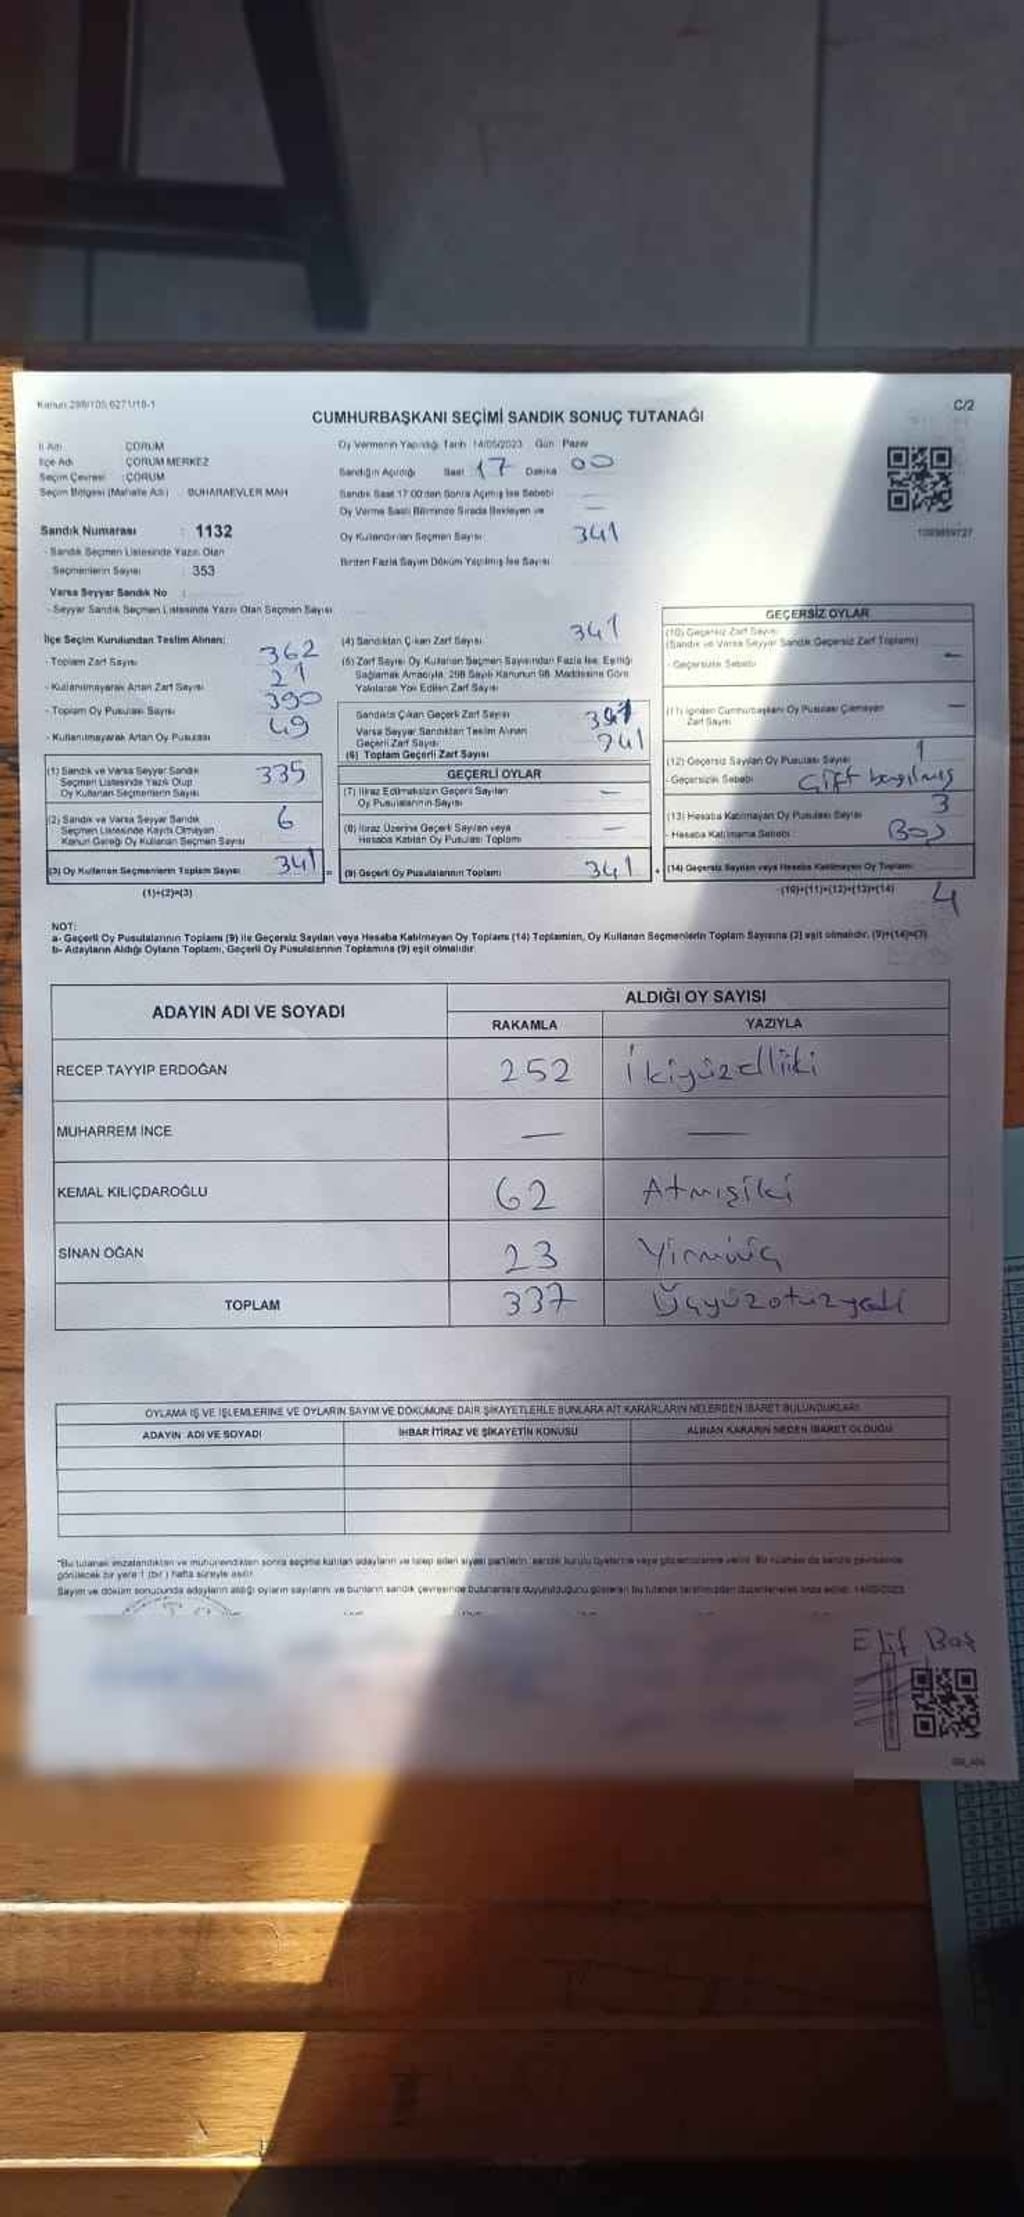 Kanun 298/105,6271/18-1
C/2
CUMHURBAŞKANI SEÇİMİ SANDIK SONUÇ TUTANAĞI
İl Adı : ÇORUM
İlçe Adı : ÇORUM MERKEZ
Seçim Çevresi : ÇORUM
Seçim Bölgesi (Mahalle Adı) : BUHARAEVLER MAH
Sandık Numarası : 1132
- Sandık Seçmen Listesinde Yazılı Olan
Seçmenlerin Sayısı : 353
Varsa Seyyar Sandık No :
- Seyyar Sandık Seçmen Listesinde Yazılı Olan Seçmen Sayısı
Oy Vermenin Yapıldığı Tarih 14/05/2023 Gün Pazar
Sandığın Açıldığı Saat 17 Dakika 00
Sandık Saat 17:00'den Sonra Açılmış İse Sebebi —
Oy Verme Saati Bitiminde Sırada Bekleyen ve —
Oy Kullandırılan Seçmen Sayısı 341
Birden Fazla Sayım Döküm Yapılmış İse Sayısı
İlçe Seçim Kurulundan Teslim Alınan:
- Toplam Zarf Sayısı 362
- Kullanılmayarak Artan Zarf Sayısı 21
- Toplam Oy Pusulası Sayısı 390
- Kullanılmayarak Artan Oy Pusulası 49
(1) Sandık ve Varsa Seyyar Sandık
Seçmen Listesinde Yazılı Olup
Oy Kullanan Seçmenlerin Sayısı 335
(2) Sandık ve Varsa Seyyar Sandık
Seçmen Listesinde Kaydı Olmayan
Kanun Gereği Oy Kullanan Seçmen Sayısı 6
(3) Oy Kullanan Seçmenlerin Toplam Sayısı 341
(1)+(2)=(3)
(4) Sandıktan Çıkan Zarf Sayısı 341
(5) Zarf Sayısı Oy Kullanan Seçmen Sayısından Fazla İse, Eşitliği
Sağlamak Amacıyla, 298 Sayılı Kanunun 98. Maddesine Göre
Yakılarak Yok Edilen Zarf Sayısı
Sandıkta Çıkan Geçerli Zarf Sayısı 341
Varsa Seyyar Sandıktan Teslim Alınan
Geçerli Zarf Sayısı
(6) Toplam Geçerli Zarf Sayısı 341
GEÇERLİ OYLAR
(7) İtiraz Edilmeksizin Geçerli Sayılan
Oy Pusulalarının Sayısı —
(8) İtiraz Üzerine Geçerli Sayılan veya
Hesaba Katılan Oy Pusulası Toplamı —
(9) Geçerli Oy Pusulalarının Toplamı 341
GEÇERSİZ OYLAR
(10) Geçersiz Zarf Sayısı
(Sandık ve Varsa Seyyar Sandık Geçersiz Zarf Toplamı)
- Geçersizlik Sebebi —
(11) İçinden Cumhurbaşkanı Oy Pusulası Çıkmayan
Zarf Sayısı —
(12) Geçersiz Sayılan Oy Pusulası Sayısı 1
- Geçersizlik Sebebi : Çift basılmış
(13) Hesaba Katılmayan Oy Pusulası Sayısı 3
- Hesaba Katılmama Sebebi : Boş
(14) Geçersiz Sayılan veya Hesaba Katılmayan Oy Toplamı
(10)+(11)+(12)+(13)=(14) 4
NOT:
a- Geçerli Oy Pusulalarının Toplamı (9) ile Geçersiz Sayılan veya Hesaba Katılmayan Oy Toplamı (14) Toplamları, Oy Kullanan Seçmenlerin Toplam Sayısına (3) eşit olmalıdır. (9)+(14)=(3)
b- Adayların Aldığı Oyların Toplamı, Geçerli Oy Pusulalarının Toplamına (9) eşit olmalıdır
ADAYIN ADI VE SOYADI ALDIĞI OY SAYISI
RAKAMLA YAZIYLA
RECEP TAYYİP ERDOĞAN 252 İkiyüzelliiki
MUHARREM İNCE — —
KEMAL KILIÇDAROĞLU 62 Atmışiki
SİNAN OĞAN 23 Yirmiüç
TOPLAM 337 Üçyüzotuzyedi
OYLAMA İŞ VE İŞLEMLERİNE VE OYLARIN SAYIM VE DÖKÜMÜNE DAİR ŞİKAYETLERLE BUNLARA AİT KARARLARIN NELERDEN İBARET BULUNDUKLARI
ADAYIN ADI VE SOYADI İHBAR İTİRAZ VE ŞİKAYETİN KONUSU ALINAN KARARIN NEDEN İBARET OLDUĞU
*Bu tutanak imzalandıktan ve mühürlendikten sonra seçime katılan adayların ve talep eden siyasi partilerin, sandık kurulu üyelerine veya gözlemcilerine verilir. Bir nüshası da sandık çevresinde
görülecek bir yere 1 (bir) hafta süreyle asılır.
Sayım ve döküm sonucunda adayların aldığı oyların sayılarını ve bunların sandık çevresinde bulunanlara duyurulduğunu gösteren bu tutanak tarafımızdan düzenlenerek imza edildi. 14/05/2023
Elif Baş